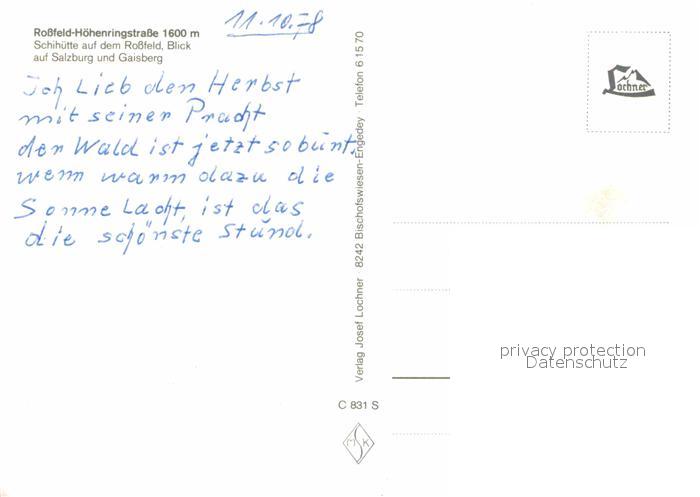 11.10.78
Roßfeld-Höhenringstraße 1600 m
Schihütte auf dem Roßfeld, Blick
auf Salzburg und Gaisberg
Ich Lieb den Herbst
mit seiner Pracht
der Wald ist jetzt so bunt,
wenn warm dazu die
Sonne Lacht, ist das
die schönste Stund.
Verlag Josef Lochner 8242 Bischofswiesen-Engedey Telefon 6 15 70
Lochner
privacy protection
Datenschutz
C 831 S
MSK